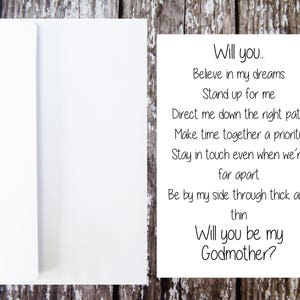 Will you...
Believe in my dreams
Stand up for me
Direct me down the right pat
Make time together a priorit
Stay in touch even when we'r
far apart
Be by my side through thick a
thin
Will you be my
Godmother?